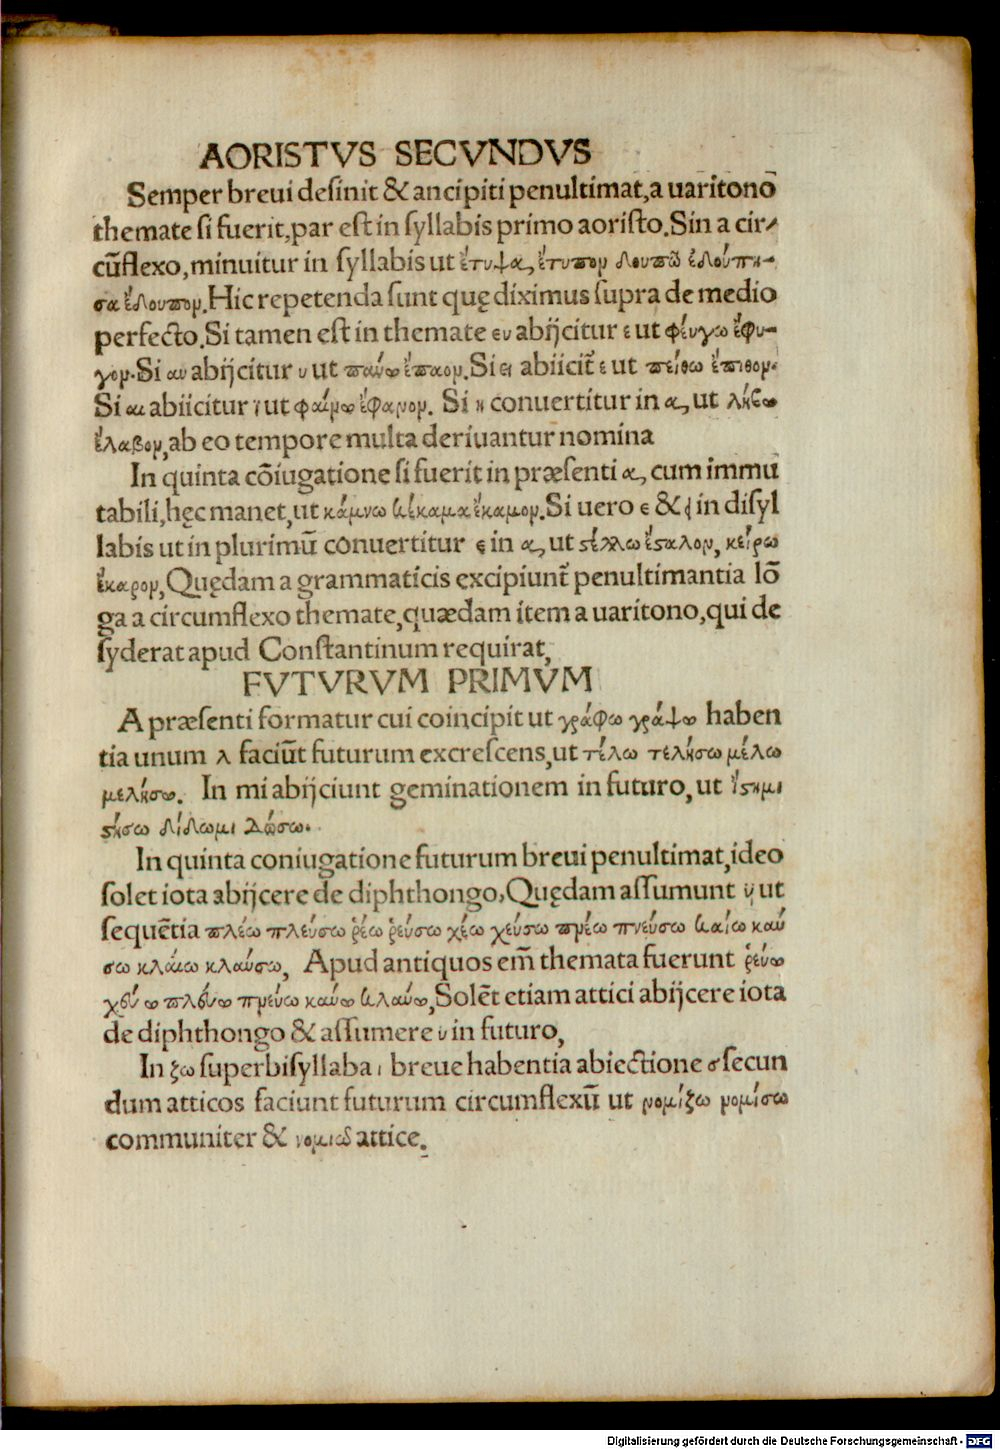 AORISTVS SECVNDVS
Semper breui desinit & ancipiti penultimat, a uaritonō
themate si fuerit, par est in syllabis primo aoristo. Sin a cir-
cūflexo, minuitur in syllabis ut ἔτυψα, ἔτυπον δουπῶ ἐδούπη-
σα ἔδουπον. Hic repetenda sunt quę diximus supra de medio
perfecto. Si tamen est in themate ευ abijcitur ε ut φεύγω ἔφυ-
γον. Si αυ abijcitur υ ut παύω ἔπαον. Si ει abiicit̄ ε ut πείθω ἔπιθον.
Si αι abiicitur ι ut φαίνω ἔφανον. Si η conuertitur in α, ut λήβω
ἔλαβον, ab eo tempore multa deriuantur nomina
In quinta cōiugatione si fuerit in præsenti α, cum immu
tabili, hęc manet, ut κάμνω κέκαμα ἔκαμον. Si uero ε & ει in disyl
labis ut in plurimū conuertitur ε in α, ut στέλλω ἔσταλον, κείρω
ἔκαρον, Quędam a grammaticis excipiunt̄ penultimantia lō
ga a circumflexo themate, quædam item a uaritono, qui de
syderat apud Constantinum requirat,
FVTVRVM PRIMVM
A præsenti formatur cui coincipit ut γράφω γράψω haben
tia unum λ faciūt futurum excrescens, ut τέλω τελήσω μέλω
μελήσω. In mi abijciunt geminationem in futuro, ut ἵστημι
στήσω δίδωμι δώσω.
In quinta coniugatione futurum breui penultimat, ideo
solet iota abijcere de diphthongo, Quędam assumunt υ ut
sequētia πλέω πλεύσω ῥέω ῥεύσω χέω χεύσω πνέω πνεύσω καίω καύ
σω κλαίω κλαύσω, Apud antiquos em̄ themata fuerunt ῥεύω
χεύω πλεύω πνεύω καύω κλαύω, Solēt etiam attici abijcere iota
de diphthongo & assumere υ in futuro,
In ζω superbisyllaba ι breue habentia abiectione σ secun
dum atticos faciunt futurum circumflexū ut νομίζω νομίσω
communiter & νομιῶ attice.
Digitalisierung gefördert durch die Deutsche Forschungsgemeinschaft - DFG